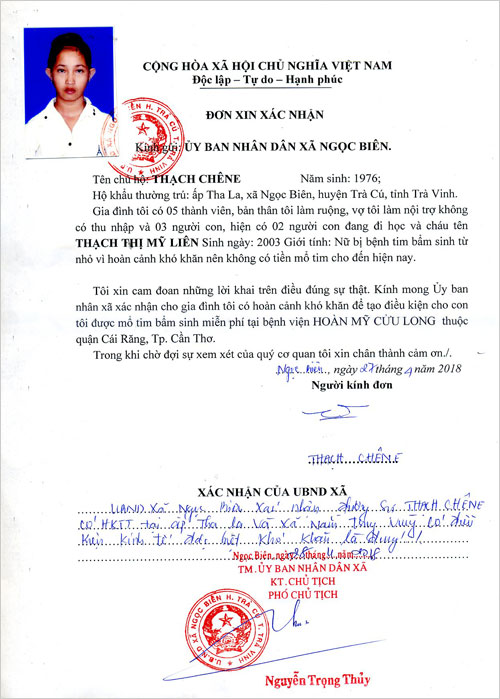 CỘNG HÒA XÃ HỘI CHỦ NGHĨA VIỆT NAM
Độc lập – Tự do – Hạnh phúc
ĐƠN XIN XÁC NHẬN
Kính gửi: ỦY BAN NHÂN DÂN XÃ NGỌC BIÊN.
Tên chủ hộ: THẠCH CHÊNE Năm sinh: 1976;
Hộ khẩu thường trú: ấp Tha La, xã Ngọc Biên, huyện Trà Cú, tỉnh Trà Vinh.
Gia đình tôi có 05 thành viên, bản thân tôi làm ruộng, vợ tôi làm nội trợ không
có thu nhập và 03 người con, hiện có 02 người con đang đi học và cháu tên
THẠCH THỊ MỸ LIÊN Sinh ngày: 2003 Giới tính: Nữ bị bệnh tim bẩm sinh từ
nhỏ vì hoàn cảnh khó khăn nên không có tiền mổ tim cho đến hiện nay.
Tôi xin cam đoan những lời khai trên điều đúng sự thật. Kính mong Ủy ban
nhân xã xác nhận cho gia đình tôi có hoàn cảnh khó khăn để tạo điều kiện cho con
tôi được mổ tim bẩm sinh miễn phí tại bệnh viện HOÀN MỸ CỬU LONG thuộc
quận Cái Răng, Tp. Cần Thơ.
Trong khi chờ đợi sự xem xét của quý cơ quan tôi xin chân thành cảm ơn./.
Ngọc Biên, ngày 27 tháng 4 năm 2018
Người kính đơn
THẠCH CHÊNE
XÁC NHẬN CỦA UBND XÃ
UBND xã Ngọc Biên xác nhận đương sự THẠCH CHÊNE
có HKTT tại ấp Tha La và xã
kinh tế đặc biệt khó khăn là đúng./.
Ngọc Biên, ngày tháng năm 2018
TM. ỦY BAN NHÂN DÂN XÃ
KT. CHỦ TỊCH
PHÓ CHỦ TỊCH
U.B.N.D XÃ NGỌC BIÊN H. TRÀ CÚ T. TRÀ VINH
Nguyễn Trọng Thủy